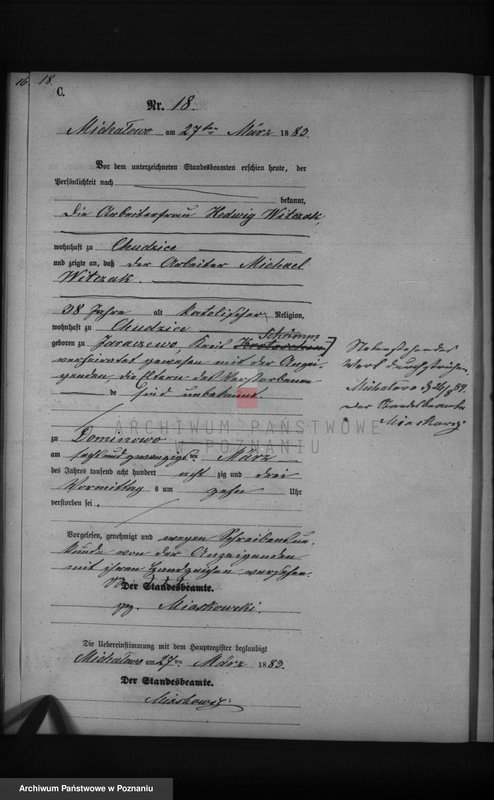 16. 18.
C.
Nr. 18.
Michałowo am 27ten März 1883.
Vor dem unterzeichneten Standesbeamten erschien heute, der
Persönlichkeit nach
bekannt,
die Arbeiterfrau Hedwig Witczak,
wohnhaft zu Chudzice
und zeigte an, daß der Arbeiter Michael
Witczak.
38 Jahre alt katolischer Religion,
wohnhaft zu Chudzice
Schrimm
geboren zu Jaraczewo Kreis
verheirathet gewesen mit der Anzei-
genden, die Eltern des Verstorbenen
sind unbekannt
zu Dominowo
am sechsundzwanzigsten März
des Jahres tausend acht hundert acht zig und drei
Vormittag s um zehn Uhr
verstorben sei.
Vorgelesen, genehmigt und wegen Schreibensun-
kunde von der Anzeigenden
mit ihren Handzeichen versehen.
Der Standesbeamte.
gez. Miaskowski.
Die Uebereinstimmung mit dem Hauptregister beglaubigt
Michałowo am 27ten März 1883.
Der Standesbeamte.
Miaskowski
Nebenstehendes
Wort durchstrichen.
Michałowo d.
Der Standesbeamte
Miaskowski
ARCHIWUM PAŃSTWOWE
W POZNANIU
Archiwum Państwowe w Poznaniu